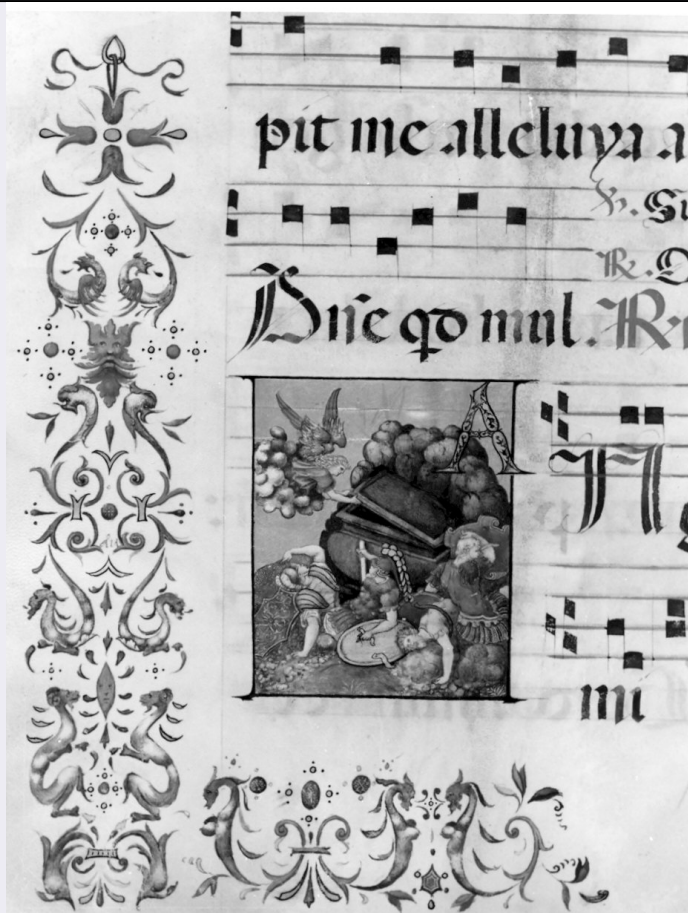 pit me alleluya a
℣. Su
℟. Q
Dise qd mul. ℟.
A N
mi